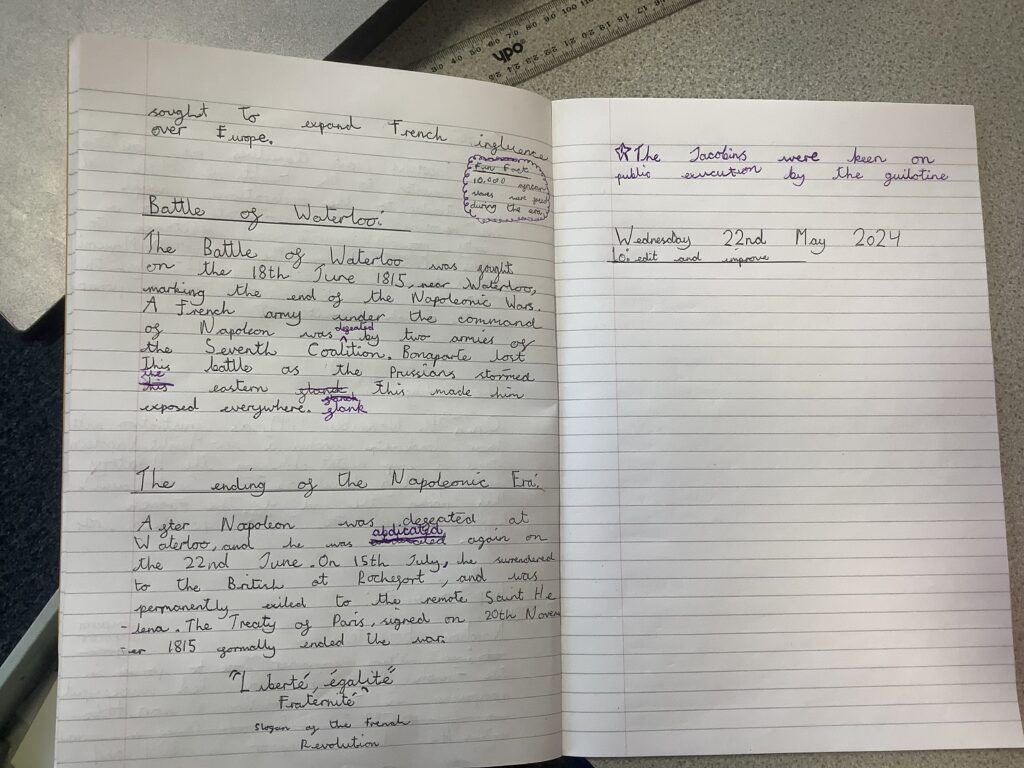 sought to expand French influence
over Europe.
Fun Fact
10,000 african
slaves were freed
during the era.
Battle of Waterloo:
The Battle of Waterloo was fought
on the 18th June 1815, near Waterloo,
marking the end of the Napoleonic Wars.
A French army under the command
of Napoleon was defeated by two armies of
the Seventh Coalition. Bonaparte lost
This battle as the Prussians stormed
the
this eastern flank this made him
exposed everywhere. flank
The ending of the Napoleonic Era:
After Napoleon was defeated at
abdicated
Waterloo, and he was again on
the 22nd June. On 15th July, he surrendered
to the British at Rochefort, and was
permanently exiled to the remote Saint He
-lena. The Treaty of Paris, signed on 20th Novem
-er 1815 formally ended the war.
"Liberté, égalité"
Fraternité"
Slogan of the French
Revolution
☆The Jacobins were keen on
public exucution by the guilotine
Wednesday 22nd May 2024
lo: edit and improve
ypo